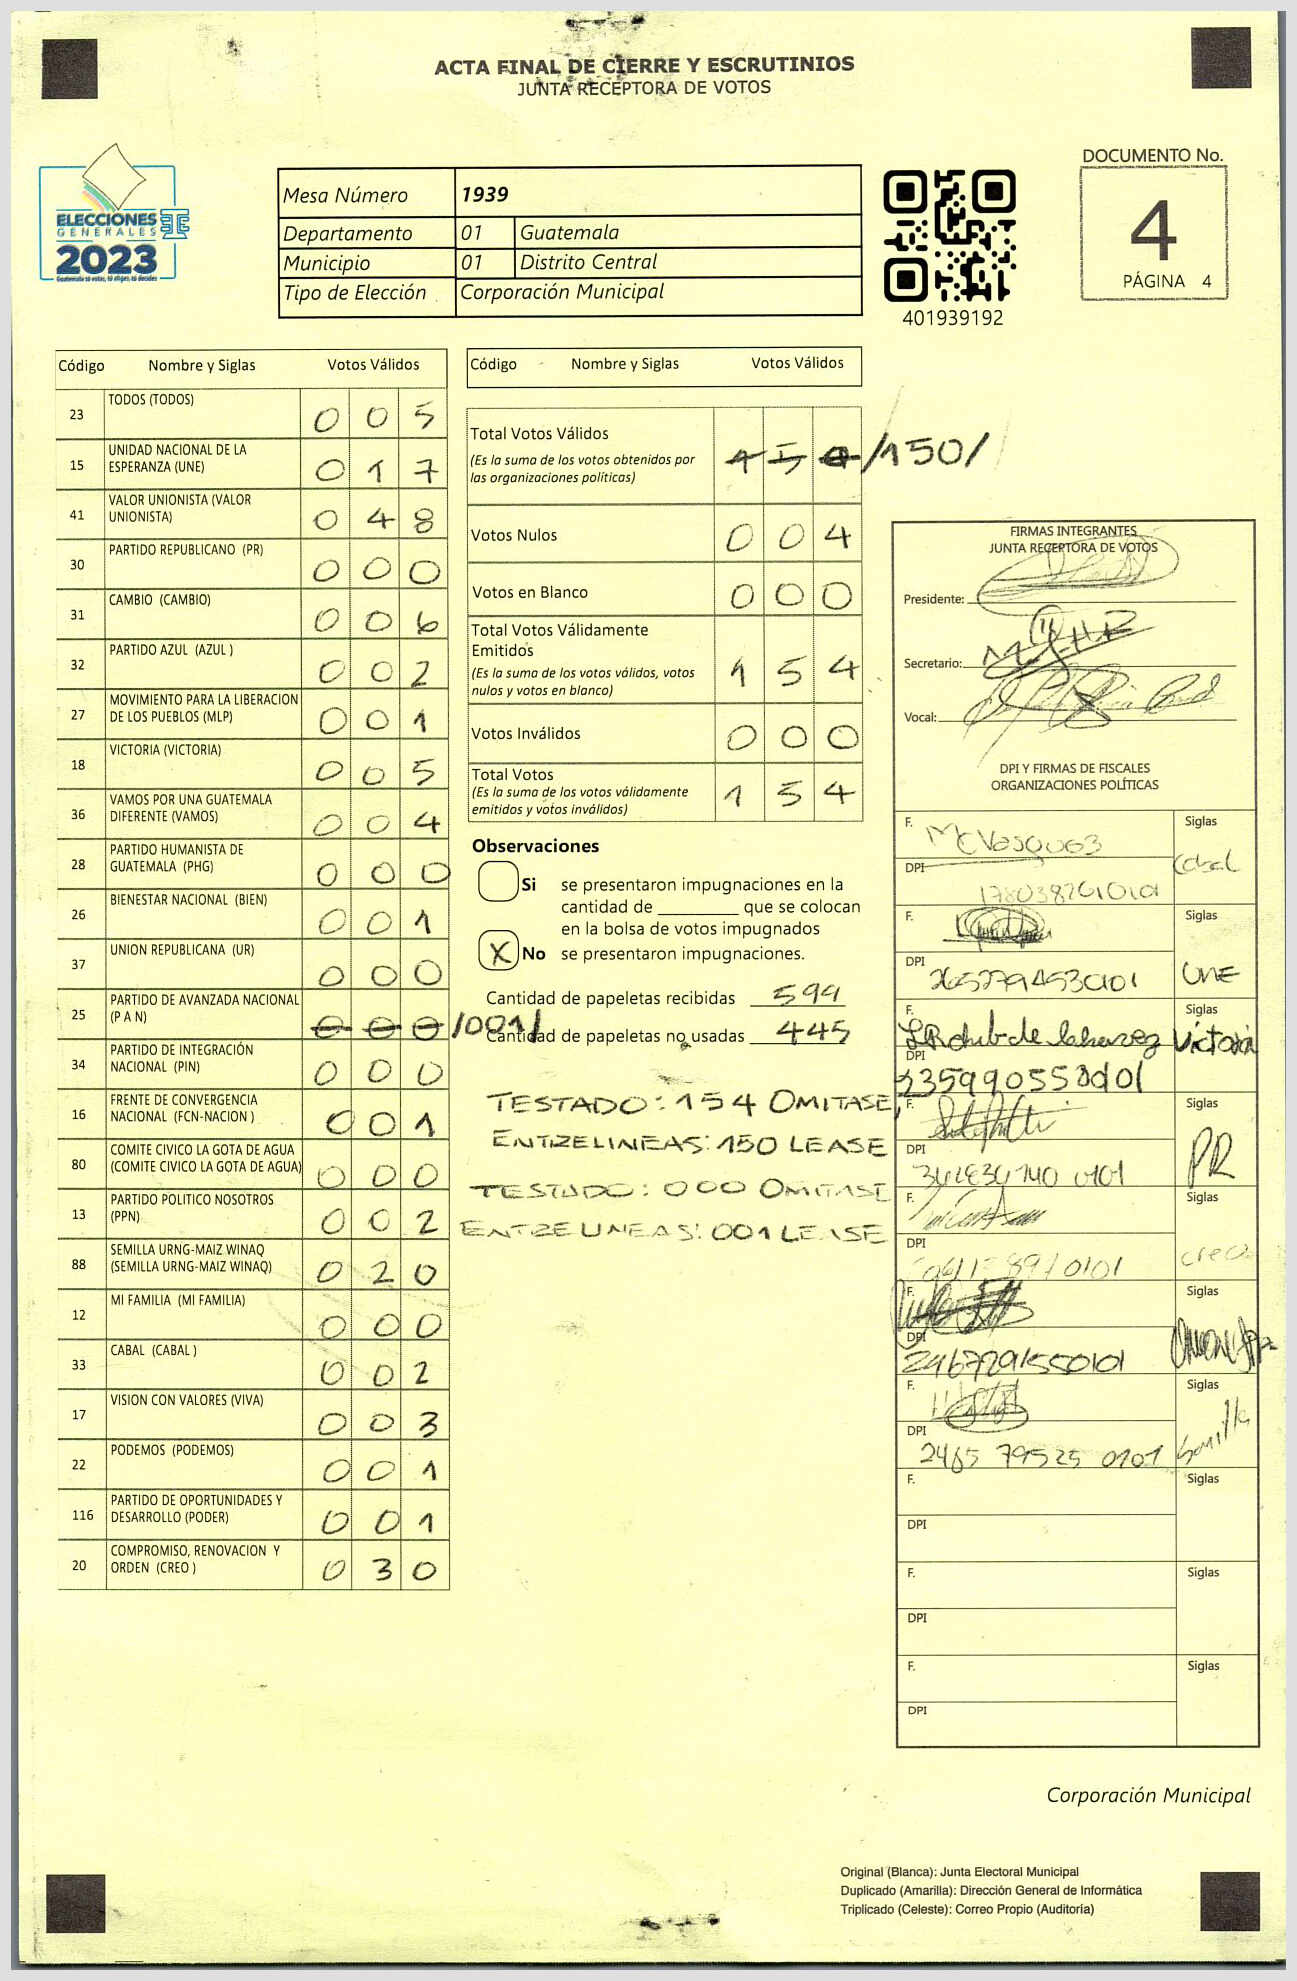 ACTA FINAL DE CIERRE Y ESCRUTINIOS
JUNTA RECEPTORA DE VOTOS
ELECCIONES
GENERALES
2023
Mesa Número 1939
Departamento 01 Guatemala
Municipio 01 Distrito Central
Tipo de Elección Corporación Municipal
401939192
DOCUMENTO No.
4
PÁGINA 4
Código Nombre y Siglas Votos Válidos
23 TODOS (TODOS) 0 0 5
15 UNIDAD NACIONAL DE LA
ESPERANZA (UNE) 0 1 7
41 VALOR UNIONISTA (VALOR
UNIONISTA) 0 4 8
30 PARTIDO REPUBLICANO (PR) 0 0 0
31 CAMBIO (CAMBIO) 0 0 6
32 PARTIDO AZUL (AZUL ) 0 0 2
27 MOVIMIENTO PARA LA LIBERACION
DE LOS PUEBLOS (MLP) 0 0 1
18 VICTORIA (VICTORIA) 0 0 5
36 VAMOS POR UNA GUATEMALA
DIFERENTE (VAMOS) 0 0 4
28 PARTIDO HUMANISTA DE
GUATEMALA (PHG) 0 0 0
26 BIENESTAR NACIONAL (BIEN) 0 0 1
37 UNION REPUBLICANA (UR) 0 0 0
25 PARTIDO DE AVANZADA NACIONAL
(P A N) 0 0 0 /001/
34 PARTIDO DE INTEGRACIÓN
NACIONAL (PIN) 0 0 0
16 FRENTE DE CONVERGENCIA
NACIONAL (FCN-NACION ) 0 0 1
80 COMITE CIVICO LA GOTA DE AGUA
(COMITE CIVICO LA GOTA DE AGUA) 0 0 0
13 PARTIDO POLITICO NOSOTROS
(PPN) 0 0 2
88 SEMILLA URNG-MAIZ WINAQ
(SEMILLA URNG-MAIZ WINAQ) 0 2 0
12 MI FAMILIA (MI FAMILIA) 0 0 0
33 CABAL (CABAL ) 0 0 2
17 VISION CON VALORES (VIVA) 0 0 3
22 PODEMOS (PODEMOS) 0 0 1
116 PARTIDO DE OPORTUNIDADES Y
DESARROLLO (PODER) 0 0 1
20 COMPROMISO, RENOVACION Y
ORDEN (CREO ) 0 3 0
Código Nombre y Siglas Votos Válidos
Total Votos Válidos
(Es la suma de los votos obtenidos por
las organizaciones políticas) 1 5 4 /150/
Votos Nulos 0 0 4
Votos en Blanco 0 0 0
Total Votos Válidamente
Emitidos
(Es la suma de los votos válidos, votos
nulos y votos en blanco) 1 5 4
Votos Inválidos 0 0 0
Total Votos
(Es la suma de los votos válidamente
emitidos y votos inválidos) 1 5 4
Observaciones
Si se presentaron impugnaciones en la
cantidad de ________ que se colocan
en la bolsa de votos impugnados
X No se presentaron impugnaciones.
Cantidad de papeletas recibidas 599
Cantidad de papeletas no usadas 445
TESTADO: 154 OMITASE,
ENTRELINEAS: 150 LEASE
TESTADO: 000 OMITASE
ENTRELINEAS: 001 LEASE
FIRMAS INTEGRANTES
JUNTA RECEPTORA DE VOTOS
Presidente:
Secretario:
Vocal:
DPI Y FIRMAS DE FISCALES
ORGANIZACIONES POLÍTICAS
F. Siglas
DPI
F. Siglas
DPI UNE
F. Siglas
Victoria
DPI
F. Siglas
DPI PR
F. Siglas
DPI creo
F. Siglas
DPI
F. Siglas
DPI Semilla
F. Siglas
DPI
F. Siglas
DPI
F. Siglas
DPI
Corporación Municipal
Original (Blanca): Junta Electoral Municipal
Duplicado (Amarilla): Dirección General de Informática
Triplicado (Celeste): Correo Propio (Auditoría)